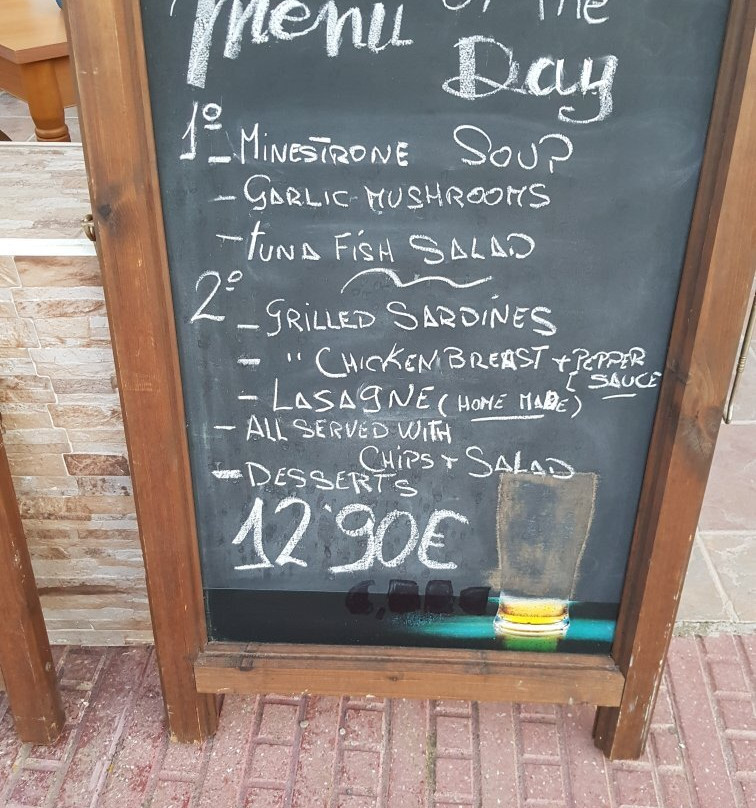 Menu of the
Day
1º
- MINESTRONE SOUP
- GARLIC MUSHROOMS
- TUNA FISH SALAD
2º
- GRILLED SARDINES
- " CHICKEN BREAST + PEPPER
SAUCE
- LASAGNE (HOME MADE)
- ALL SERVED WITH
CHIPS + SALAD
- DESSERTS
12'90€